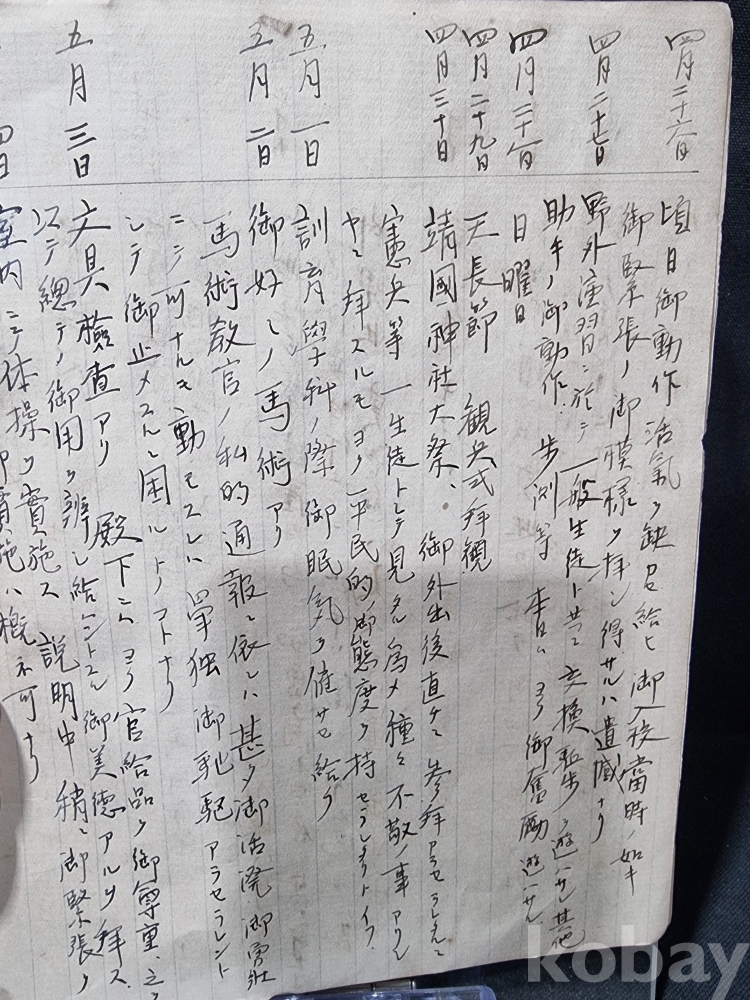 四月二十六日
頃日御動作活氣ヲ缺カセ給ヒ御入校當時ノ如キ
御緊張ノ御模様ヲ拝シ得サルハ遺憾ナリ
四月二十七日
野外演習ニ於テ一般生徒ト共ニ交換駈歩ヲ遊ハサレ其他
助手ノ御動作、歩測等本日ハヨク御奮勵遊ハサル
四月二十八日
日曜日
四月二十九日
天長節 観兵式拝観
四月三十日
靖國神社大祭、御外出後直チニ参拝アラセラレタルニ
憲兵等一生徒トシテ見タル為メ種々不敬ノ事アリシ
ヤニ拝スルモヨク平民的御態度ヲ持セラレタリトイフ
五月一日
訓育學科ノ際御眠気ヲ催サセ給フ
五月二日
御好ミノ馬術アリ
馬術敎官ノ私的通報ニ依レハ甚タ御活溌御勇壮
ニテ可ナルモ動モスレハ單独御馳駆アラセラレント
シテ御止メスルニ困ルトノコトナリ
五月三日
文具檢査アリ 殿下ニハヨク官給品ヲ御尊重、之ヲ
以テ總テノ御用ヲ辨シ給ハントスル御美徳アルヲ拝ス
四日
室内ニテ体操ヲ實施ス 説明中稍々御緊張ヲ
實施ハ概ネ可ナリ
kobay